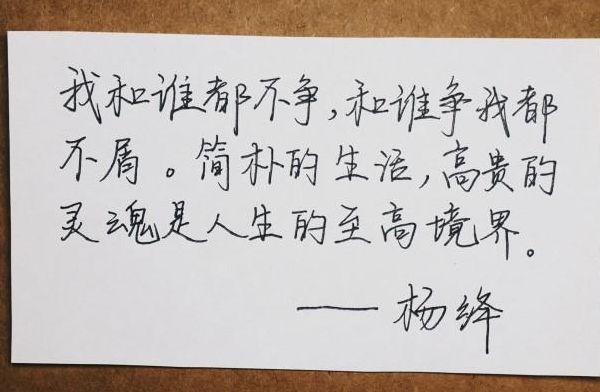 我和谁都不争,和谁争我都
不屑。简朴的生活,高贵的
灵魂是人生的至高境界。
——杨绛